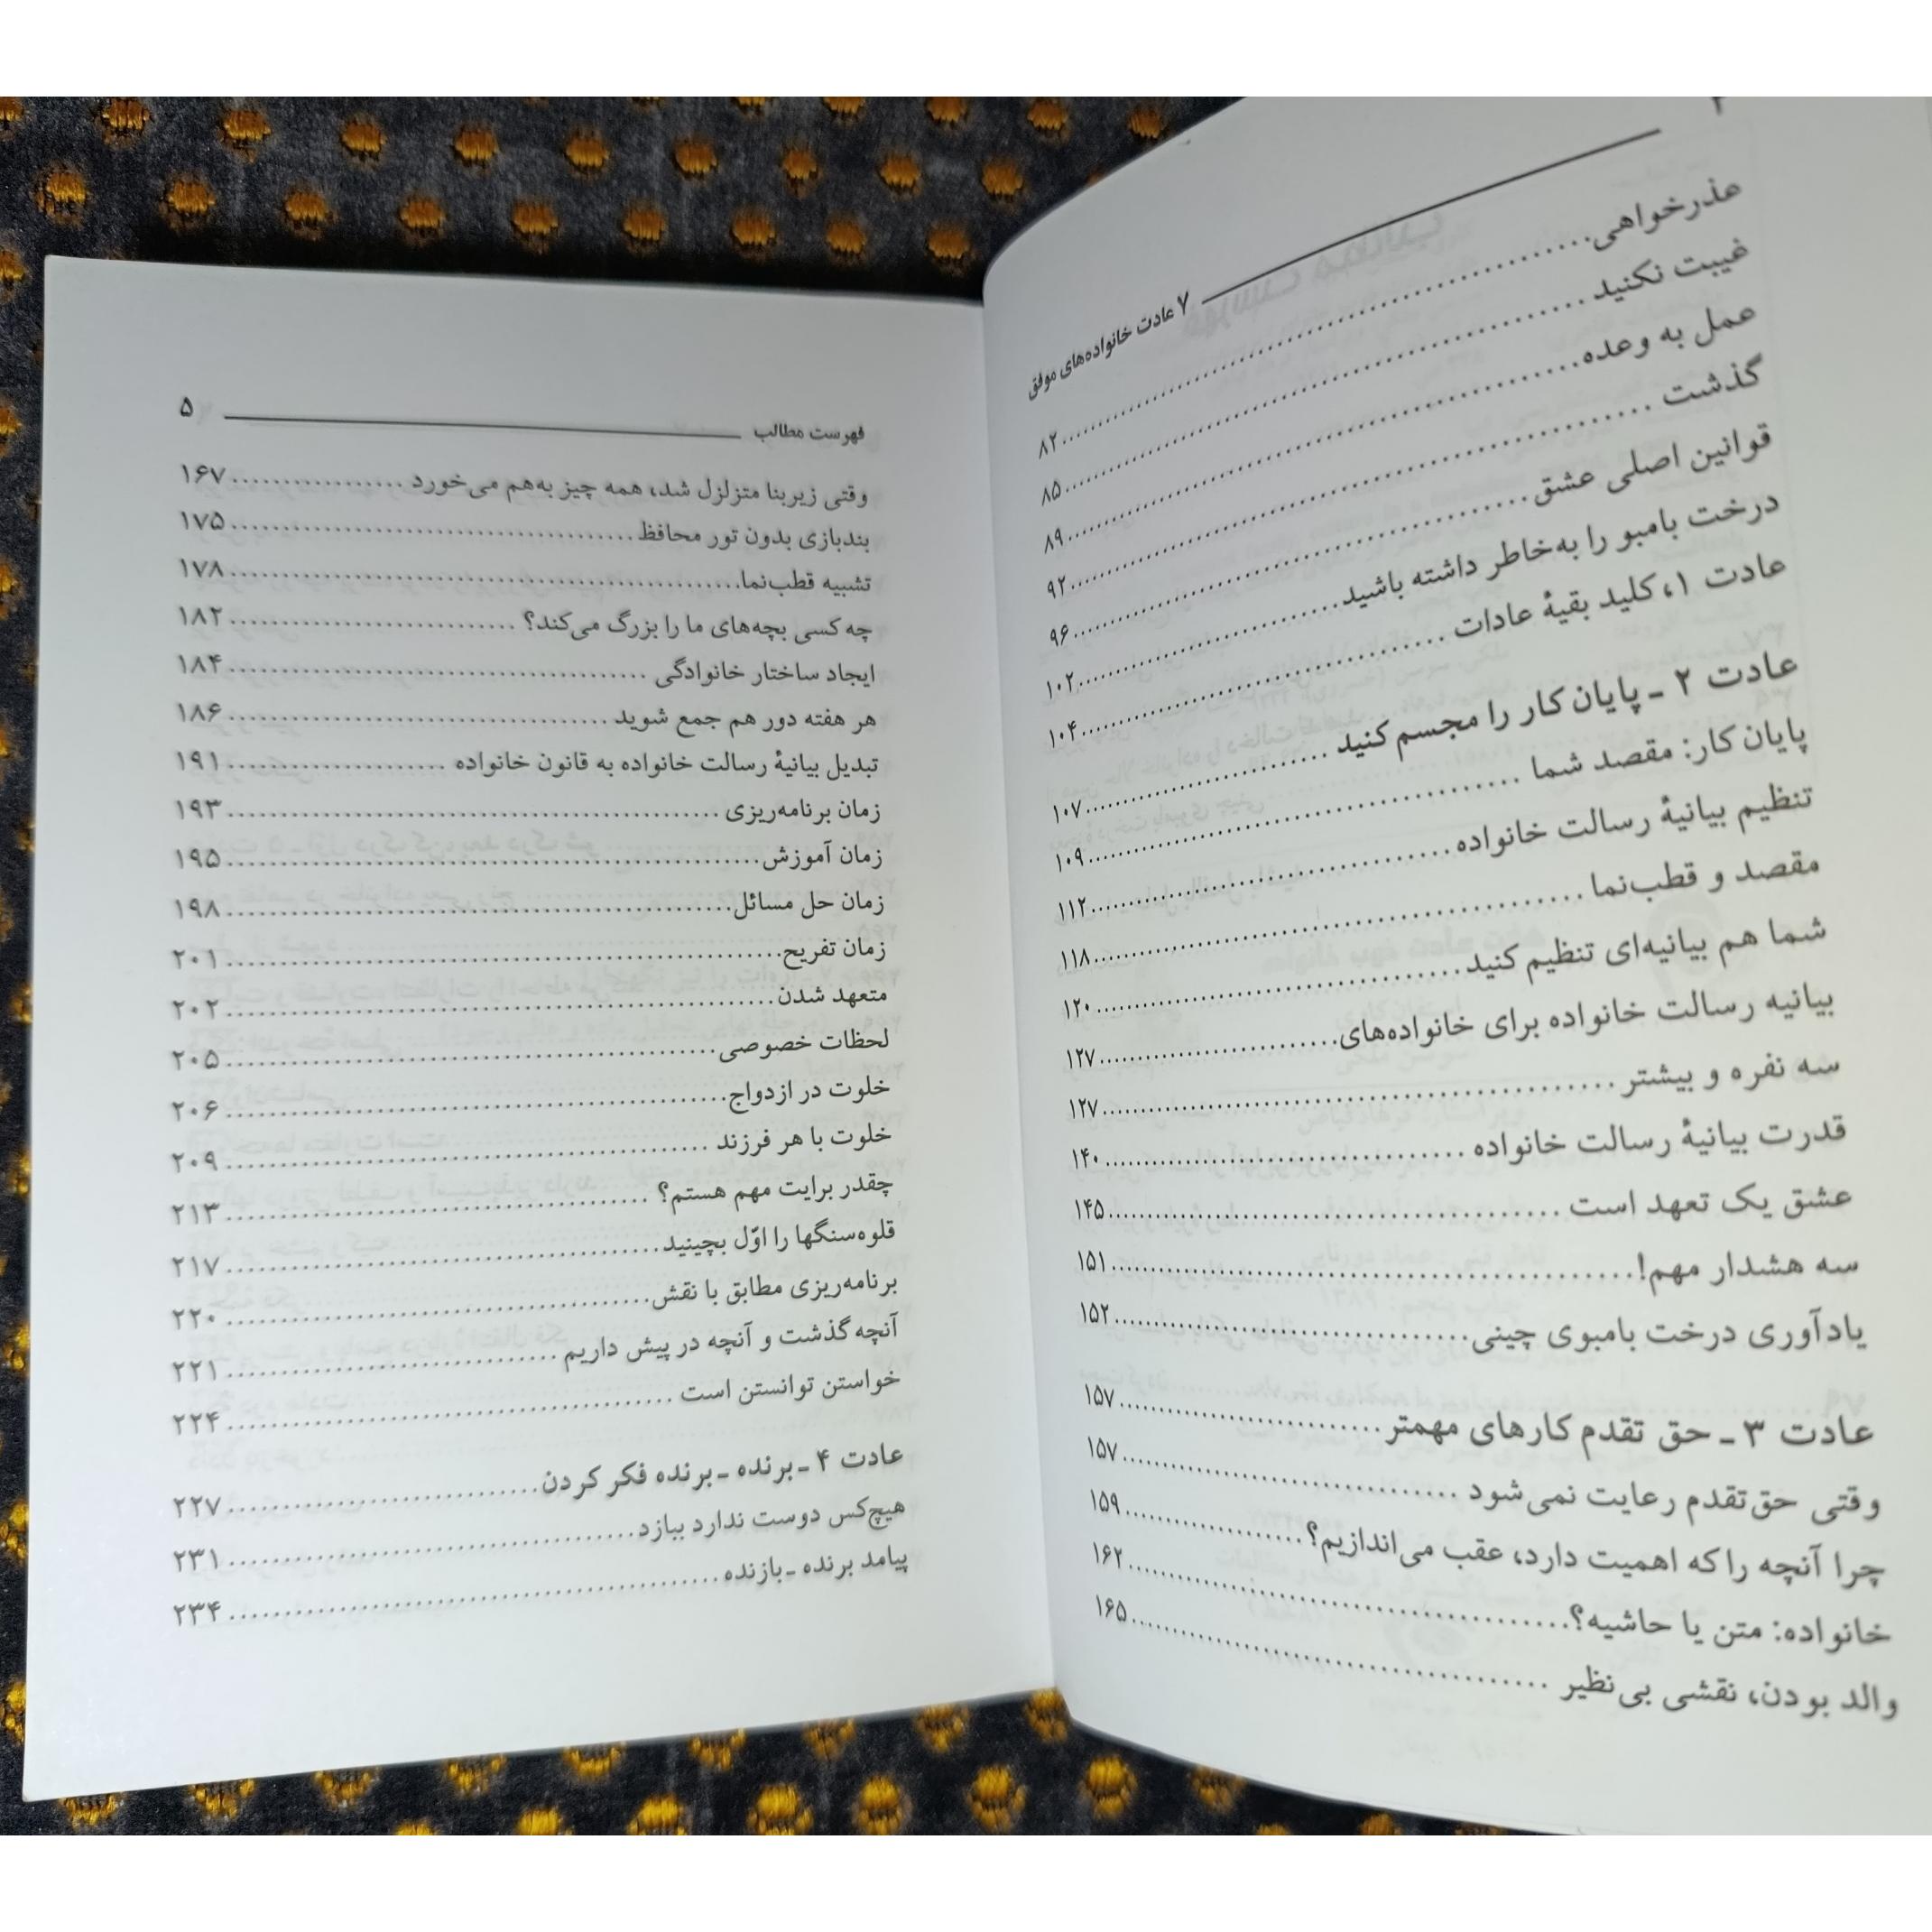 ۷ عادت خانواده‌های موفق
عذرخواهی ........ ۸۲
غیبت نکنید ........ ۸۵
عمل به وعده ........ ۸۹
گذشت ........ ۹۲
قوانین اصلی عشق ........ ۹۶
درخت بامبو را به‌خاطر داشته باشید ........ ۱۰۲
عادت ۱، کلید بقیهٔ عادات ........ ۱۰۴
عادت ۲ ـ پایان کار را مجسم کنید ........ ۱۰۷
پایان کار: مقصد شما ........ ۱۰۹
تنظیم بیانیهٔ رسالت خانواده ........ ۱۱۲
مقصد و قطب‌نما ........ ۱۱۸
شما هم بیانیه‌ای تنظیم کنید ........ ۱۲۰
بیانیه رسالت خانواده برای خانواده‌های ........ ۱۲۷
سه نفره و بیشتر ........ ۱۲۷
قدرت بیانیهٔ رسالت خانواده ........ ۱۴۰
عشق یک تعهد است ........ ۱۴۵
سه هشدار مهم! ........ ۱۵۱
یادآوری درخت بامبوی چینی ........ ۱۵۲
عادت ۳ ـ حق تقدم کارهای مهمتر ........ ۱۵۷
وقتی حق‌تقدم رعایت نمی‌شود ........ ۱۵۷
چرا آنچه را که اهمیت دارد، عقب می‌اندازیم؟ ........ ۱۵۹
خانواده: متن یا حاشیه؟ ........ ۱۶۲
والد بودن، نقشی بی‌نظیر ........ ۱۶۵
فهرست مطالب ۵
وقتی زیربنا متزلزل شد، همه چیز به‌هم می‌خورد ........ ۱۶۷
بندبازی بدون تور محافظ ........ ۱۷۵
تشبیه قطب‌نما ........ ۱۷۸
چه کسی بچه‌های ما را بزرگ می‌کند؟ ........ ۱۸۲
ایجاد ساختار خانوادگی ........ ۱۸۴
هر هفته دور هم جمع شوید ........ ۱۸۶
تبدیل بیانیهٔ رسالت خانواده به قانون خانواده ........ ۱۹۱
زمان برنامه‌ریزی ........ ۱۹۳
زمان آموزش ........ ۱۹۵
زمان حل مسائل ........ ۱۹۸
زمان تفریح ........ ۲۰۱
متعهد شدن ........ ۲۰۲
لحظات خصوصی ........ ۲۰۵
خلوت در ازدواج ........ ۲۰۶
خلوت با هر فرزند ........ ۲۰۹
چقدر برایت مهم هستم؟ ........ ۲۱۳
قلوه‌سنگها را اوّل بچینید ........ ۲۱۷
برنامه‌ریزی مطابق با نقش ........ ۲۲۰
آنچه گذشت و آنچه در پیش داریم ........ ۲۲۱
خواستن توانستن است ........ ۲۲۴
عادت ۴ ـ برنده ـ برنده فکر کردن ........ ۲۲۷
هیچ‌کس دوست ندارد ببازد ........ ۲۳۱
پیامد برنده ـ بازنده ........ ۲۳۴